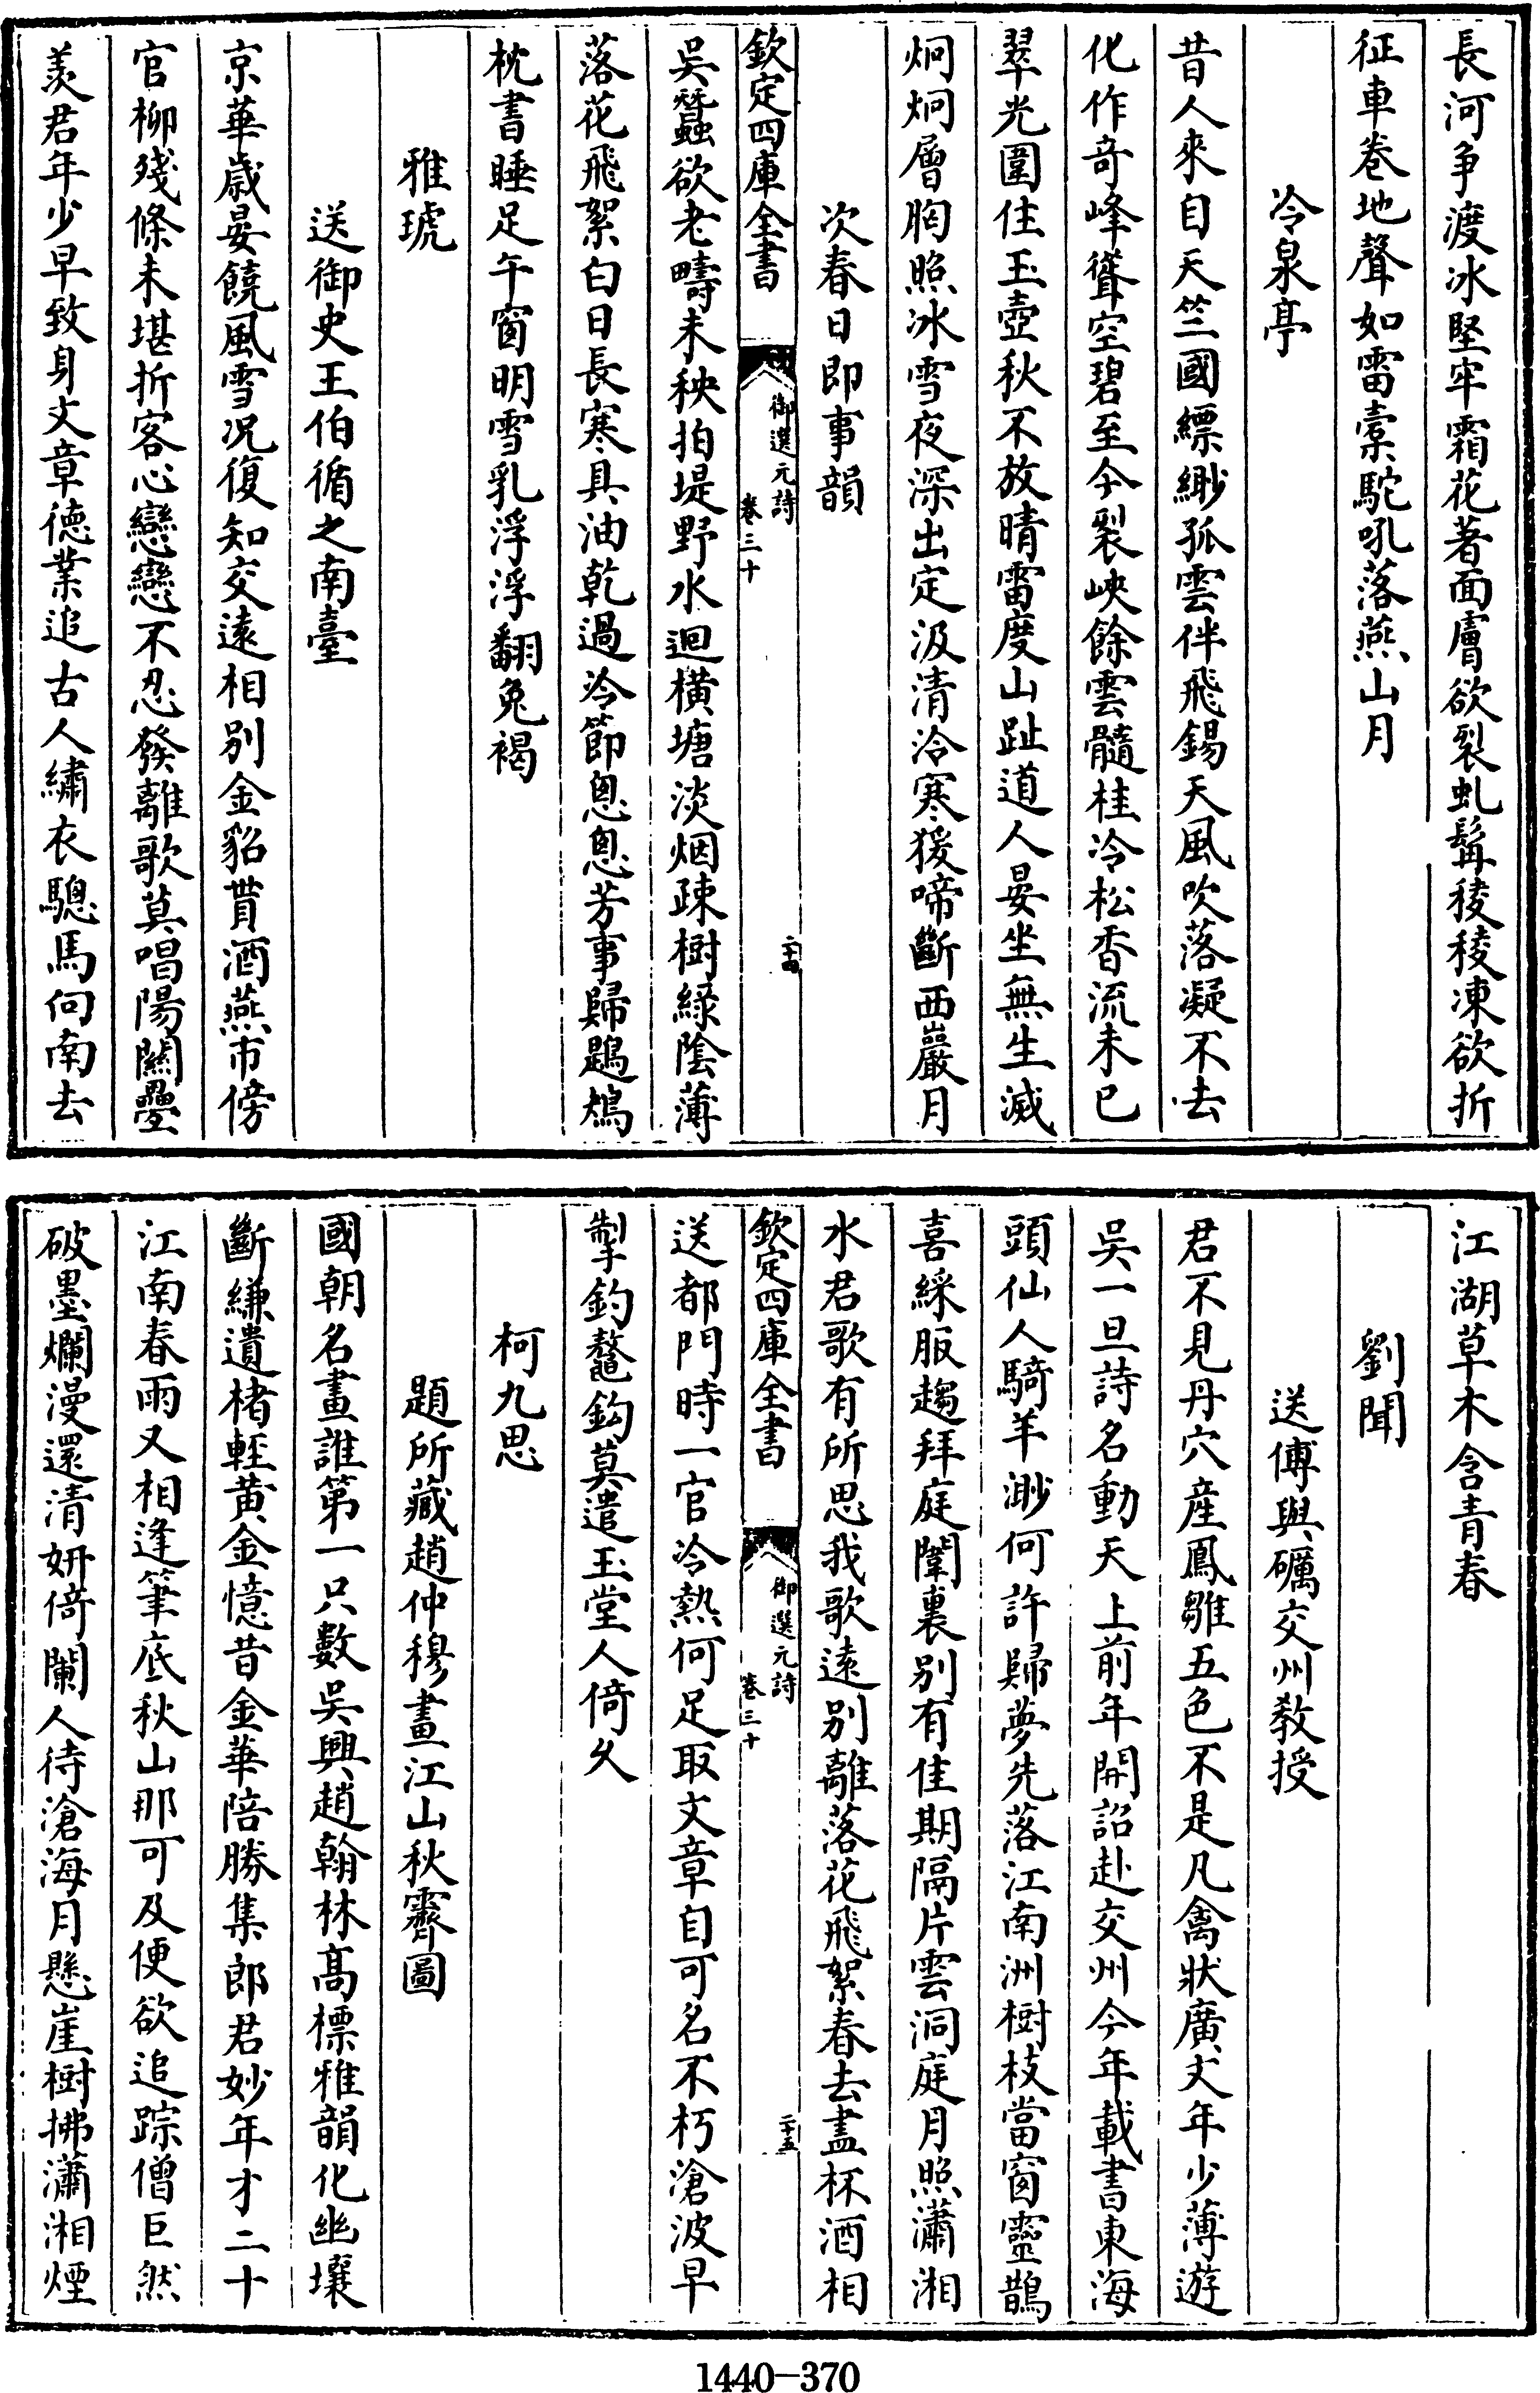 長河争渡冰堅牢霜花著面膚欲裂虬髯稜稜凍欲折
征車巻地聲如雷橐駝吼落燕山月
冷泉亭
昔人來自天竺國縹緲孤雲伴飛錫天風吹落凝不去
化作竒峰聳空碧至今裂峽餘雲髓桂冷松香流未已
翠光圍住玉壺秋不放晴雷度山趾道人晏坐無生滅
炯炯層胸照冰雪夜深出定汲清冷寒猨啼斷西巖月
次春日即事韻
欽定四庫全書
御選元詩
巻三十
二十四
吳蠶欲老疇未秧拍堤野水迴橫塘淡烟疎樹緑陰薄
落花飛絮白日長寒具油乾過冷節恖恖芳事歸鶗鴂
枕書睡足午窗明雪乳浮浮翻兔褐
雅琥
送御史王伯循之南臺
京華歳晏饒風雪况復知交逺相別金貂貰酒燕市傍
官柳殘條未堪折客心戀戀不忍發離歌莫唱陽關疊
羨君年少早致身文章徳業追古人繡衣驄馬向南去
江湖草木含青春
劉聞
送傅與礪交州敎授
君不見丹穴産鳳雛五色不是凡禽狀廣文年少薄遊
吳一旦詩名動天上前年開詔赴交州今年載書東海
頭仙人騎羊渺何許歸夢先落江南洲樹枝當窗靈鵲
喜綵服趨拜庭闈裏別有佳期隔片雲洞庭月照瀟湘
水君歌有所思我歌逺別離落花飛絮春去盡杯酒相
欽定四庫全書
御選元詩
巻三十
二十五
送都門時一官冷熱何足取文章自可名不朽滄波早
掣釣鼇鈎莫遣玉堂人倚久
柯九思
題所藏趙仲穆畫江山秋霽圖
國朝名畫誰第一只數吳興趙翰林髙標雅韻化幽壤
斷縑遺楮輕黄金憶昔金華陪勝集郎君妙年才二十
江南春雨又相逢筆底秋山那可及便欲追踪僧巨然
破墨爛漫還清妍倚闌人待滄海月懸崖樹拂瀟湘煙
1440-370